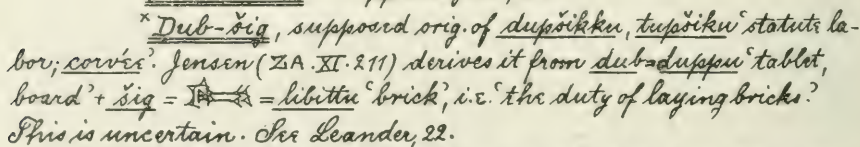 × Dub-šig, supposed orig. of dupšikku, tupšiku ‘statute la-
bor; corvée’. Jensen (ZA. XI. 211) derives it from dub=duppu ‘tablet,
board’ + šig = = libittu ‘brick’, i.e. ‘the duty of laying bricks’.
This is uncertain. See Leander, 22.